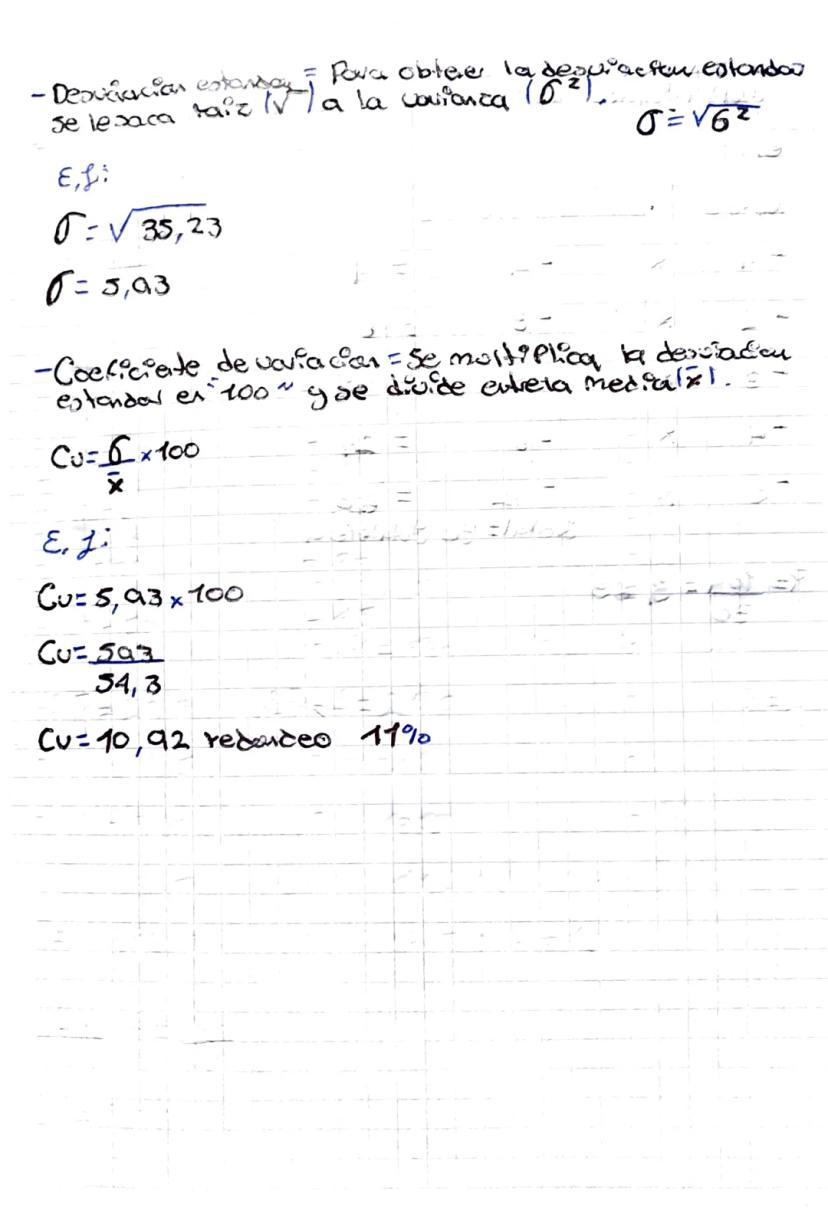 - Desviación estandar = Para obtener la desviación estandar
se le saca raíz (√ ) a la varianza (σ²).
σ = √σ²
E,J:
σ = √35,23
σ = 5,93
- Coeficiente de variación = Se moltiplica la desviacion
estandar en "100" y se divide entre la media (x̄).
Cv = σ/x̄ x 100
E,J:
Cv = 5,93 x 100
Cv = 593
54,3
Cv = 10,92 redondeo 11%